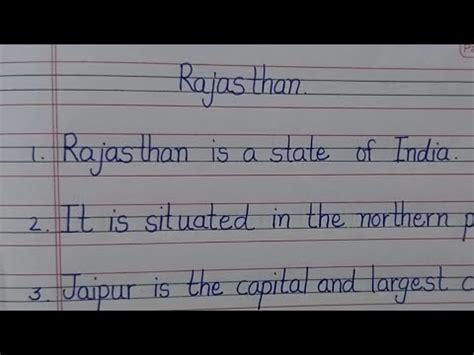 Rajasthan.
1. Rajasthan is a state of India.
2. It is situated in the northern
3. Jaipur is the capital and largest